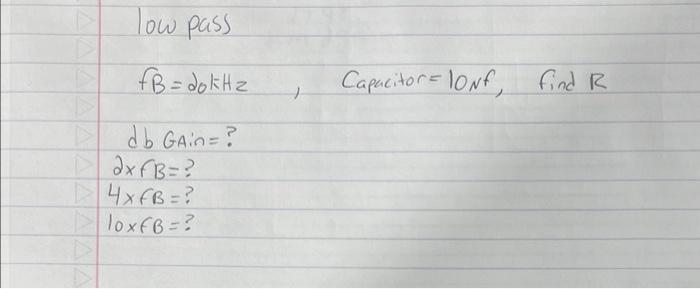 low pass
fB = 20kHz , Capacitor = 10Nf, find R
db GAin = ?
2xfB = ?
4xfB = ?
10xfB = ?